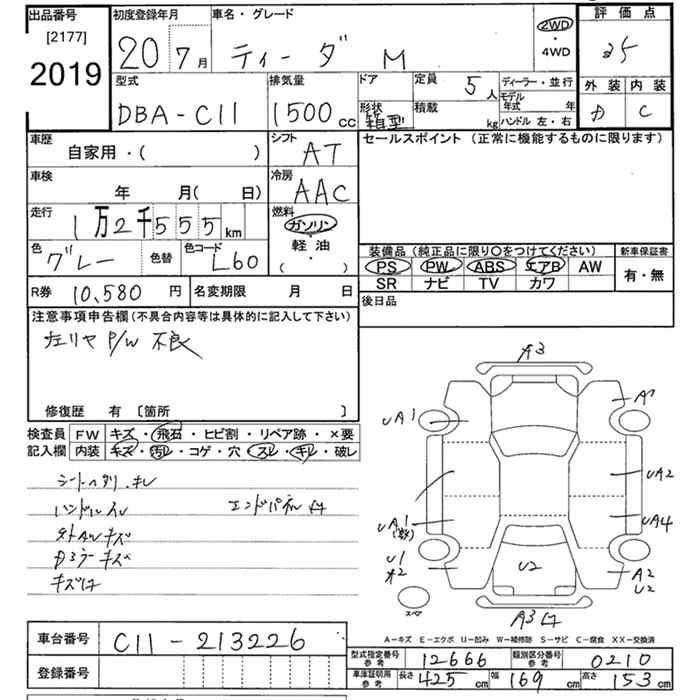 出品番号
[2177]
2019
初度登録年月
20 7月
車名・グレード
ティーダ M
2WD
・
4WD
評価点
外装 内装
C
型式
DBA-C11
排気量
1500 cc
ドア
形状
箱型
定員 5人
積載 kg
ディーラー・並行
モデル年式 年
ハンドル 左・右
車歴
自家用・( )
シフト
AT
車検
年 月( 日)
冷房
AAC
走行
1万2千555km
燃料
ガソリン
・
軽油
( ・ )
色
グレー
色替
色コード
L60
セールスポイント (正常に機能するものに限ります)
装備品 (純正品に限り○をつけてください)
PS PW ABS エアB AW
SR ナビ TV カワ
新車保証書
有・無
R券 10,580 円
名変期限 月 日
後日品
注意事項申告欄(不具合内容等は具体的に記入して下さい)
左リヤ P/W 不良
修復歴 有 [箇所 ]
検査員
記入欄
FW キズ・飛石・ヒビ割・リペア跡・×要
内装 キズ・汚レ・コゲ・穴・スレ・キレ・破レ
ハンドルスレ
エンドパネル
キズ
A3
A1
UA1
UA2
UA1
UA4
U1
U2
A2
U2
スペア
A3
A-キズ E-エクボ U-凹み W-補修跡 S-サビ C-腐食 XX-交換済
車台番号
C11-213226
登録番号
型式指定番号
参考
12666
類別区分番号
参考
0210
車庫証明用
参考
長さ 425 cm
幅 169 cm
高さ 153 cm